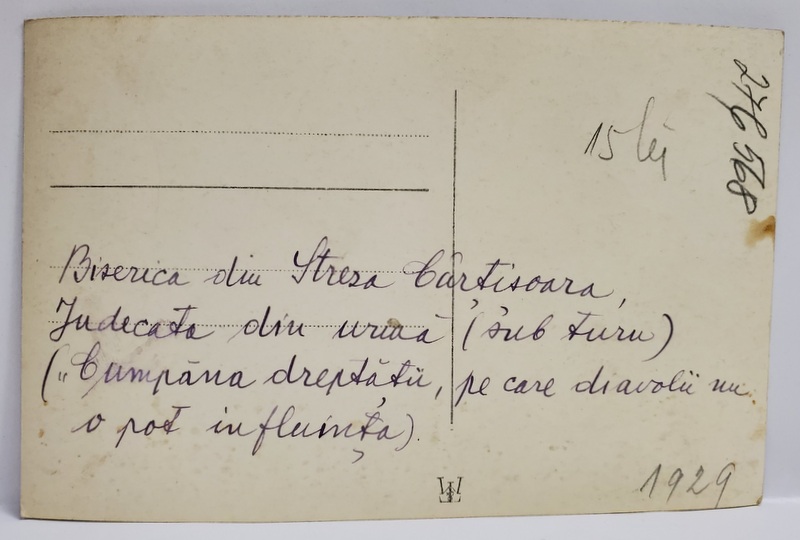 15 lei
276 568
Biserica din Streza Cârțisoara,
Judecata din urmă (sub turn)
(„Cumpăna dreptății, pe care diavolii nu
o pot influința).
1929